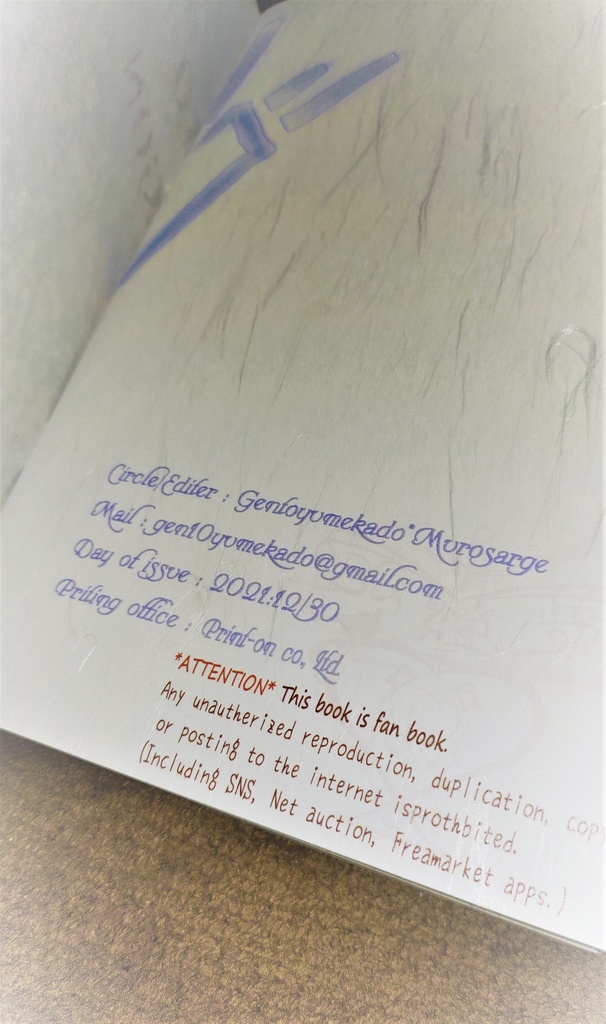 Circle/Editer : Gentoyumekado*Murosarge
Mail : gen10yumekado@gmail.com
Day of issue : 2021.12/30
Priting office : Print-on co, ltd.
*ATTENTION* This book is fan book.
Any unautherized reproduction, duplication, copy
or posting to the internet isprothbited.
(Including SNS, Net auction, Freamarket apps.)